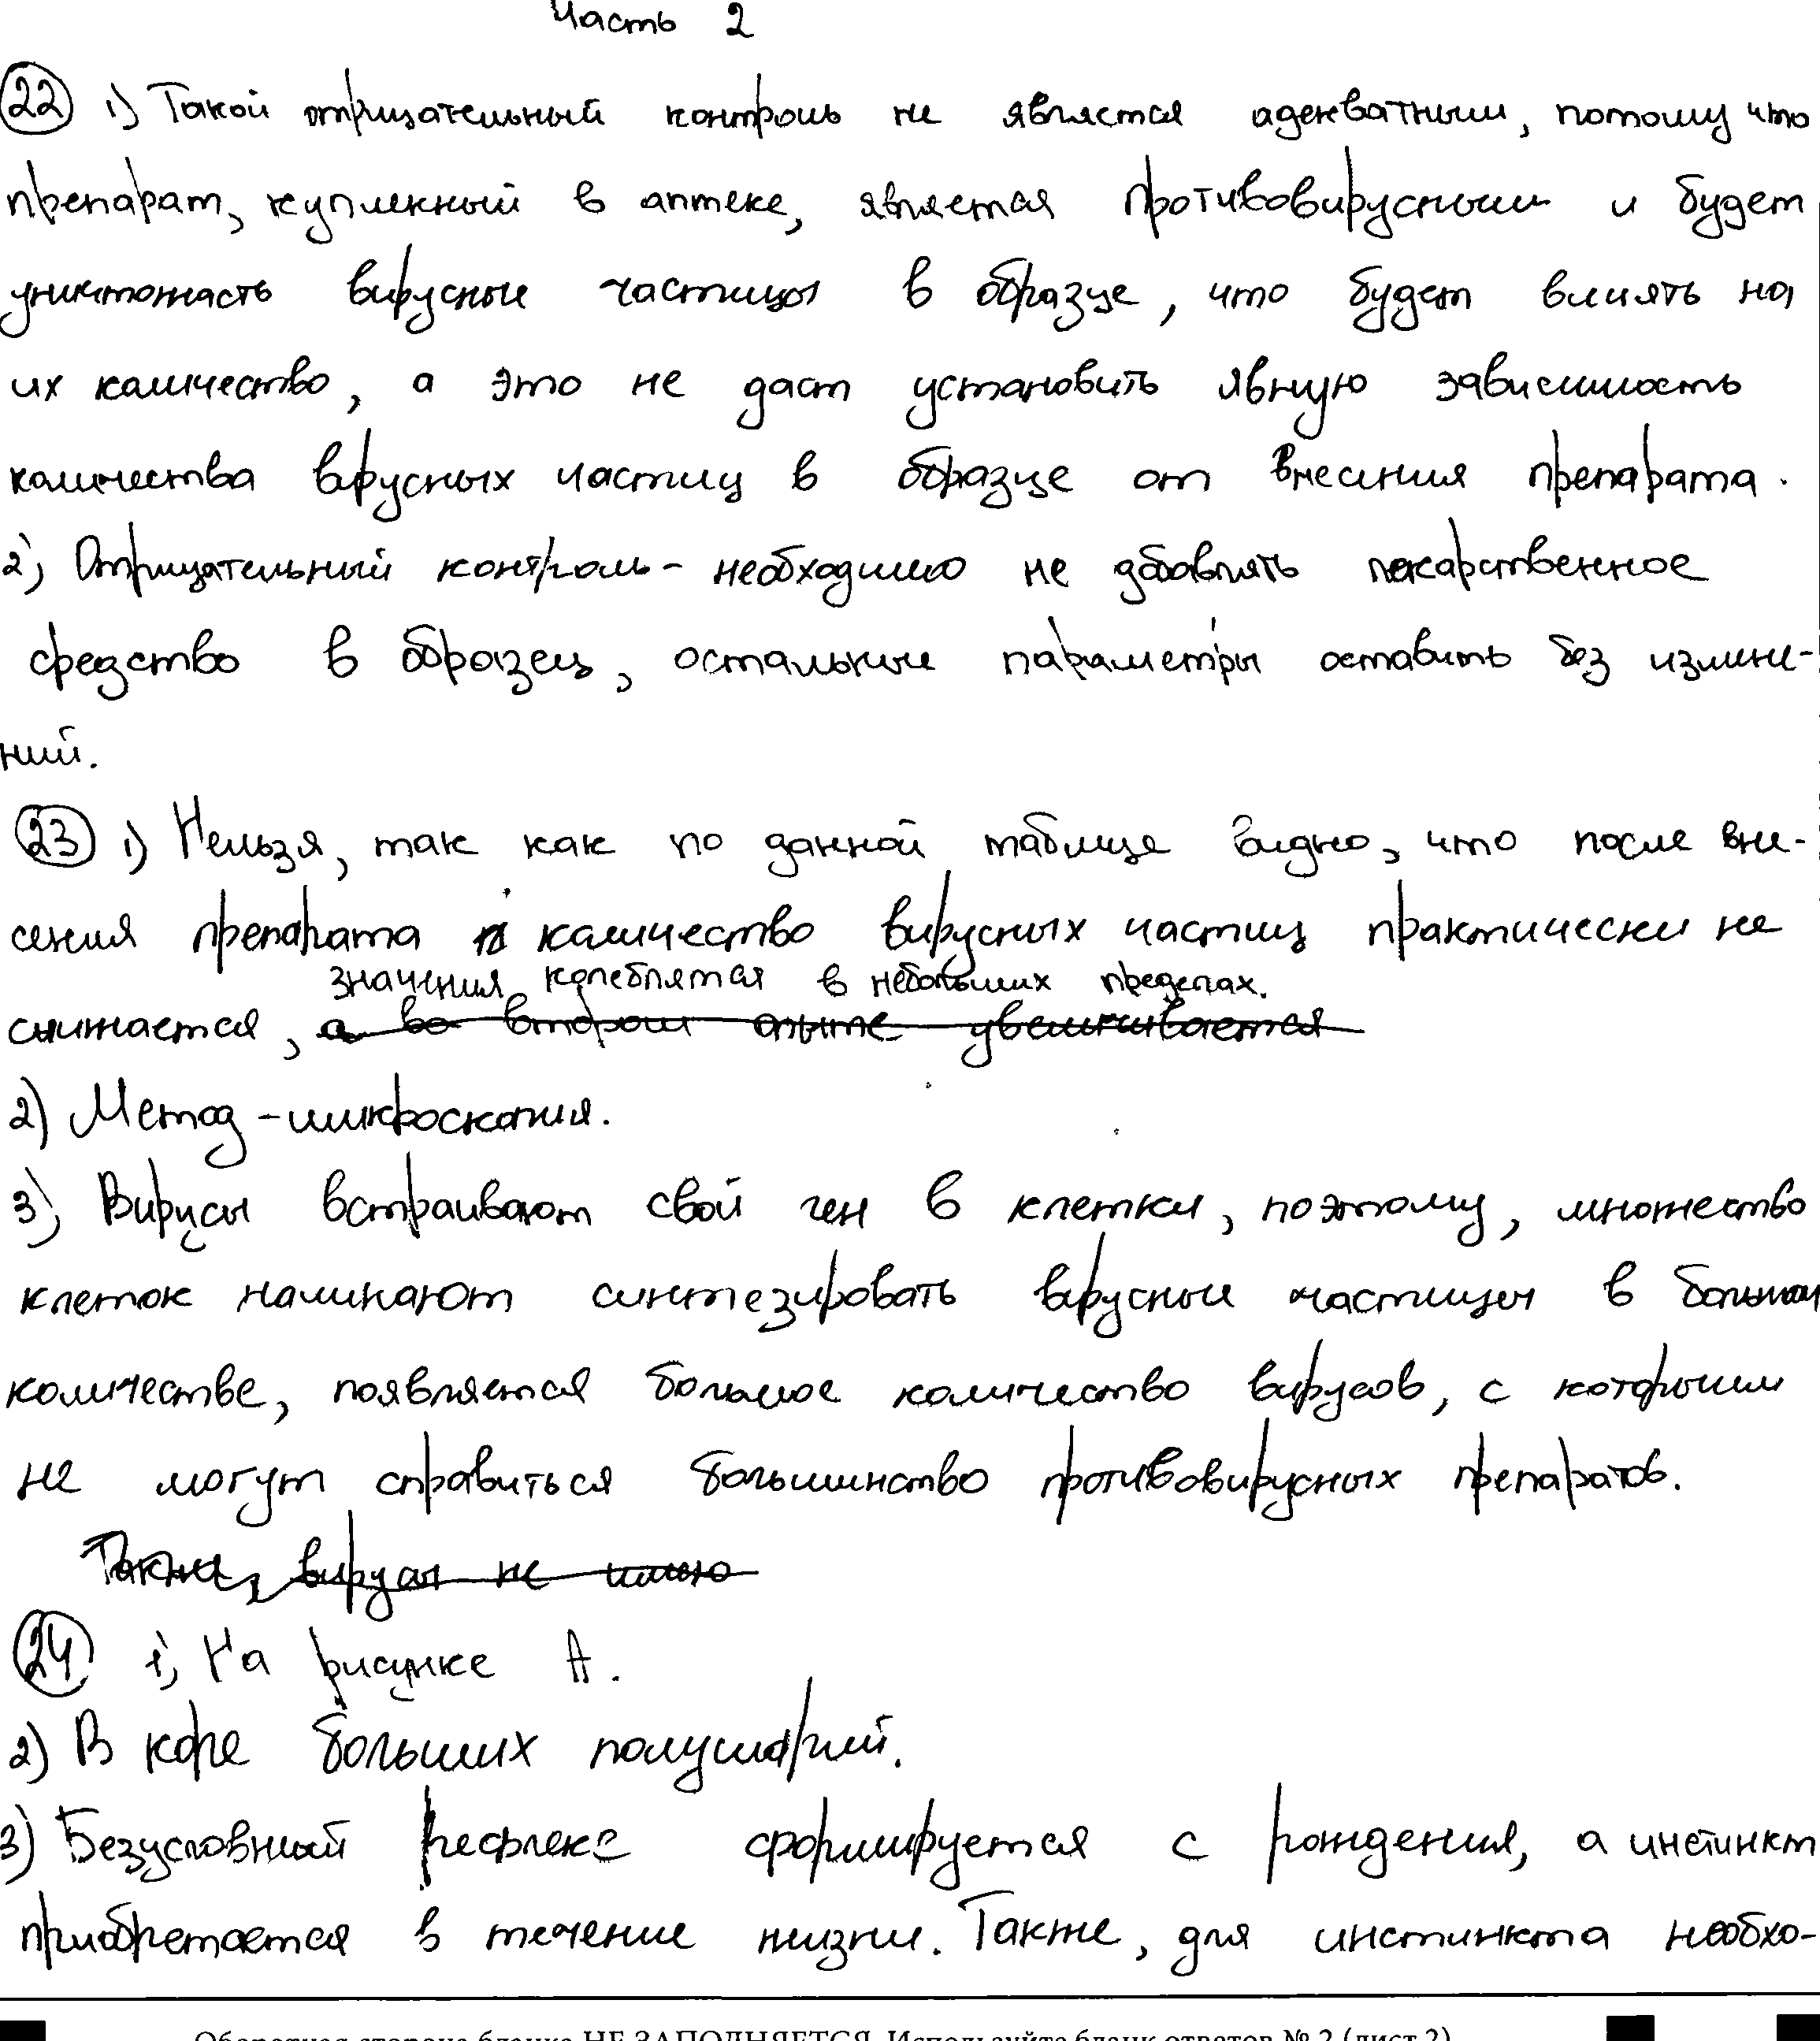 Часть 2
22 1) Такой отрицательный контроль не является адекватным, потому что
препарат, купленный в аптеке, является противовирусным и будет
уничтожать вирусные частицы в образце, что будет влиять на
их количество, а это не даст установить явную зависимость
количества врусных частиц в образце от внесения препарата.
2) Отрицательный контроль - необходимо не добавлять лекарственное
средство в образец, остальные параметры оставить без измене-
ний.
23 1) Нельзя, так как по данной таблице видно, что после вне-
сения препарата количество вирусных частиц практически не
значения колеблятся в небольших пределах.
снижается, а во втором опыте увеличивается
2) Метод - микроскопия.
3) Вирусы встраивают свой ген в клетки, поэтому, множество
клеток начинают синтезировать врусные частицы в большом
количестве, появляется большое количество вирусов, с которыми
не могут справиться большинство противовирусных препаратов.
Также, вирусы не имею
24 1) На рисунке А.
2) В коре больших полушарий.
3) Безусловный рефлекс формируется с рождения, а инстинкт
приобретается в течение жизни. Также, для инстинкта необхо-
Оборотная сторона бланка НЕ ЗАПОЛНЯЕТСЯ. Используйте бланк ответов № 2 (лист 2)